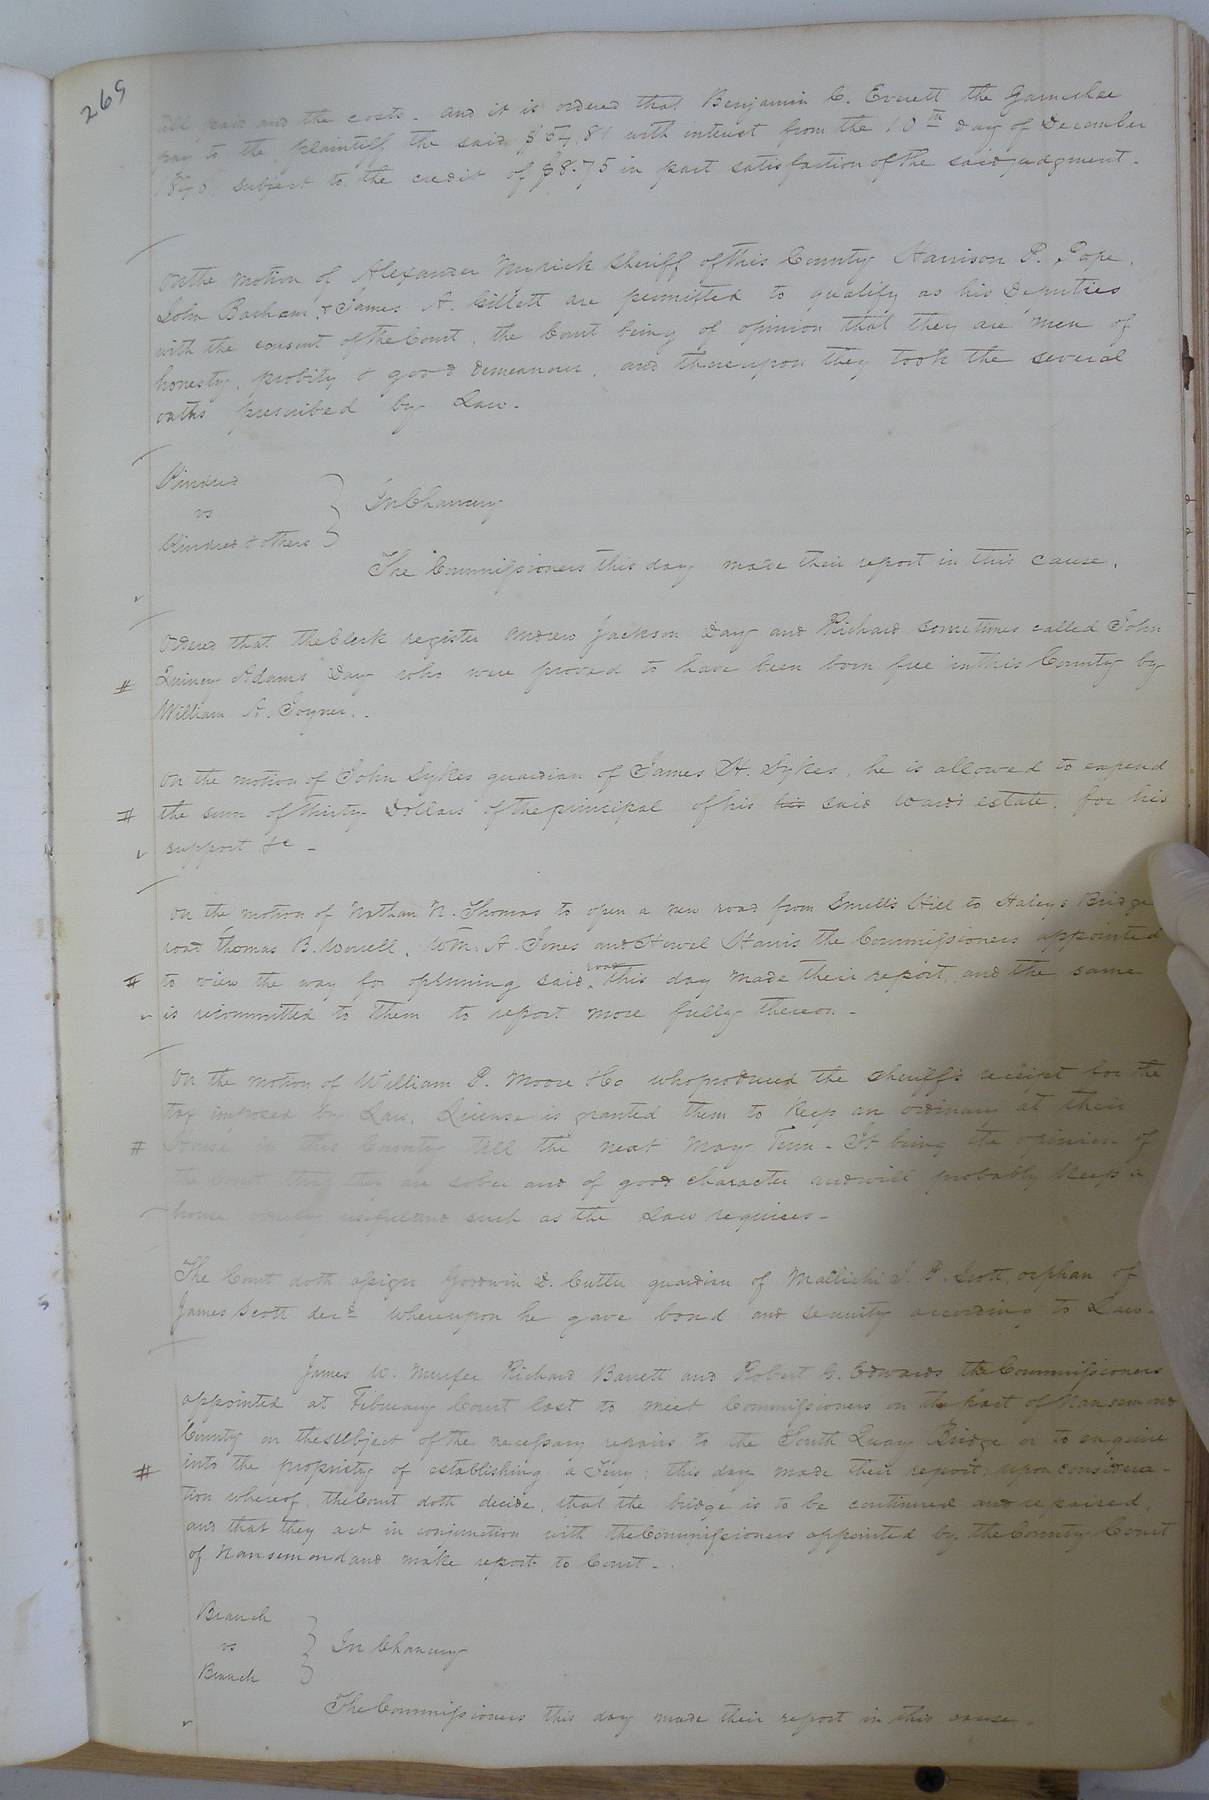 269
till paid and the costs. and it is ordered that Benjamin C. Everett the Garnishee
pay to the plaintiff the said $ with interest from the 10th day of December
1840. subject to the credit of $8.75 in part satisfaction of the said judgment.
On the motion of Alexander Myrick Sheriff of this County Harrison P. Pope,
John Barham, & James A. Gillett are permitted to qualify as his Deputies
with the consent of the Court, the Court being of opinion that they are men of
honesty, probity & good demeanour, and thereupon they took the several
oaths prescribed by Law.
Kindred
vs
Kindred & others
In Chancery
The Commissioners this day made their report in this cause.
Ordered that the Clerk register Andrew Jackson Day and Richard sometimes called John
# Quincy Adams Day who were proved to have been born free in this County by
William A. Joyner.
On the motion of John Sykes guardian of James H. Sykes, he is allowed to expend
# the sum of thirty Dollars of the principal of his his said wards estate, for his
support &c -
On the motion of Nathan N. Thomas to open a new road from Smells Hill to Haleys Bridge
road Thomas B. Worrell, Wm. A. Jones and Howel Harris the Commissioners appointed
# to view the way for opening said road this day made their report, and the same
is recommitted to them to report more fully thereon -
On the motion of William P. Moore & Co who produced the Sheriff's receipt for the
tax imposed by Law, License is granted them to keep an ordinary at their
# House in this County till the next May Term - It being the opinion of
the Court that they are sober and of good character and will probably keep a
house orderly useful and such as the Law requires -
The Court doth assign Goodwin D. Cutler guardian of Scott, orphan of
James Scott decd whereupon he gave bond and security according to Law -
James W. Murfee Richard Barrett and Robert G. Edwards the Commissioners
appointed at February Court last to meet Commissioners on the part of Nansemond
County on the subject of the necessary repairs to the South Quay Bridge or to enquire
# into the propriety of establishing a Ferry; this day made their report; upon considera-
tion whereof, the Court doth decide, that the bridge is to be continued and repaired,
and that they act in conjunction with the Commissioners appointed by the County Court
of Nansemond and make report to Court -
Branch
vs
Branch
In Chancery
The Commissioners this day made their report in this cause.